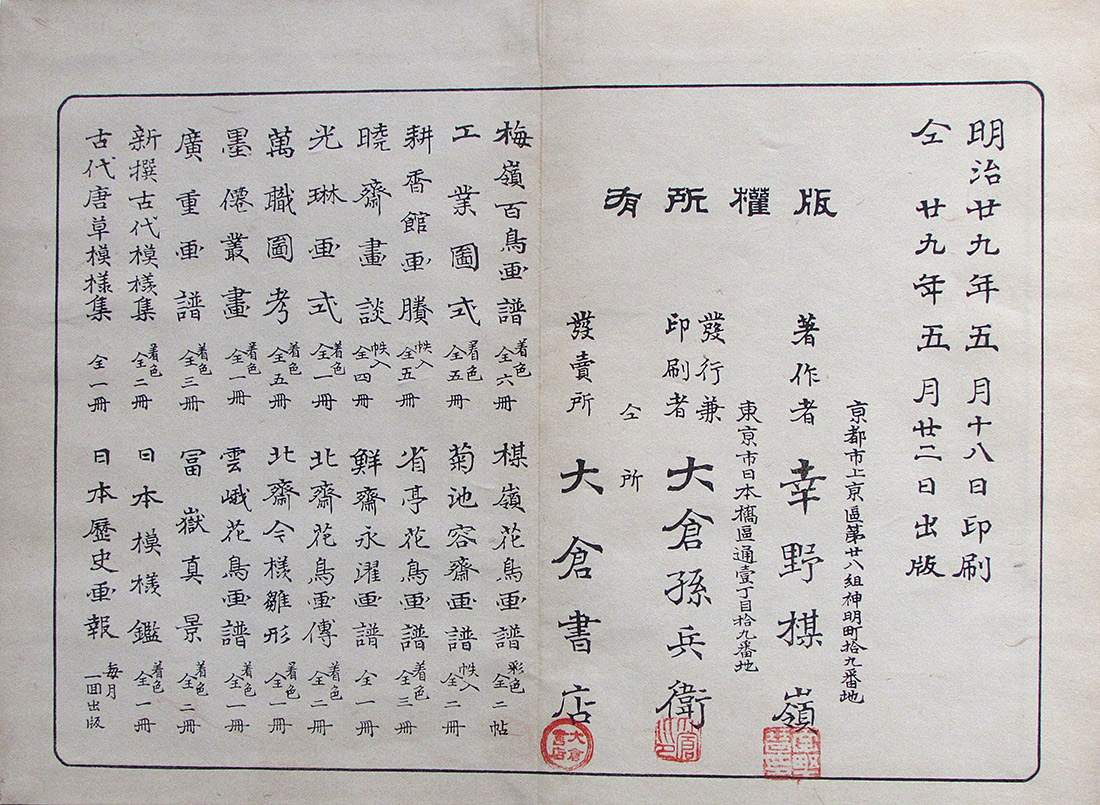 明治廿九年五月十八日印刷
仝廿九年五月廿二日出版
版權所有
京都市上京區第廿八組神明町拾九番地
著作者 幸野楳嶺
東京市日本橋區通壹丁目拾九番地
發行兼
印刷者 大倉孫兵衛
仝所
發賣所 大倉書店
大倉書店
梅嶺百鳥画譜 着色全六冊
工業圖式 着色全五冊
耕香館画賸 帙入全五冊
曉齋畫談 帙入全四冊
光琳画式 着色全一冊
萬職圖考 着色全五冊
墨僊叢畫 着色全一冊
廣重画譜 着色全三冊
新撰古代模様集 着色全二冊
古代唐草模様集 全一冊
楳嶺花鳥画譜 彩色全二帖
菊池容齋画譜 帙入全二冊
省亭花鳥画譜 着色全三冊
鮮齋永濯画譜 全一冊
北齋花鳥画傳 着色全二冊
北齋今様雛形 着色全一冊
雲峨花鳥画譜 着色全一冊
冨嶽真景 着色全二冊
日本模様鑑 着色全一冊
日本歷史画報 毎月一回出版